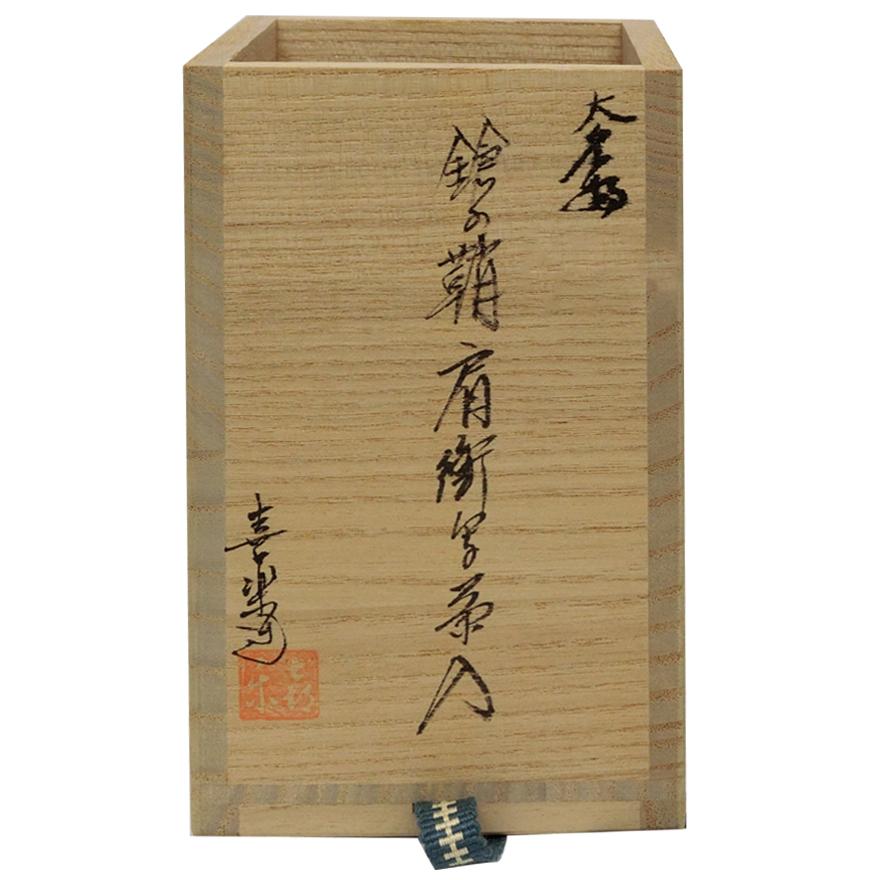 大名物
鎗の鞘肩衝写茶入
喜楽造